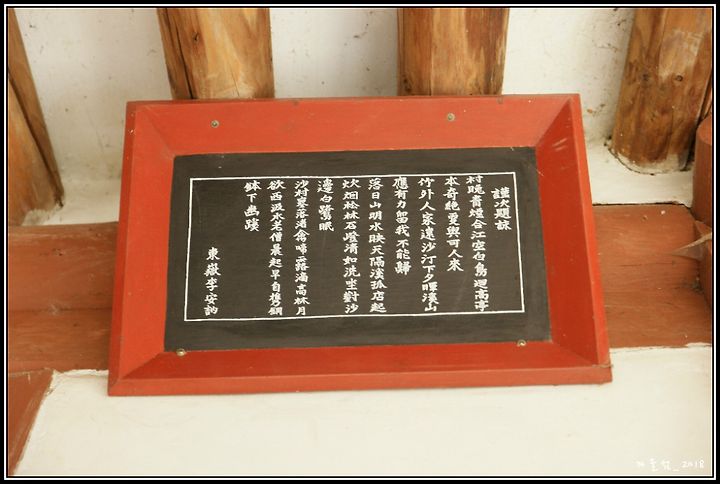 謹次題詠
村晩靑烟合江空白鳥迴高亭
本奇絶更與可人來
竹外人家遠沙汀下夕暉溪山
應有力留我不能歸
落日山明水映天隔溪孤店起
炊烟松林石磴淸如洗坐對沙
邊白鷺眠
沙村寥落渚禽啼露滿高林月
欲西汲水老僧晨起早自携銅
鉢下幽蹊
東嶽李安訥
2018